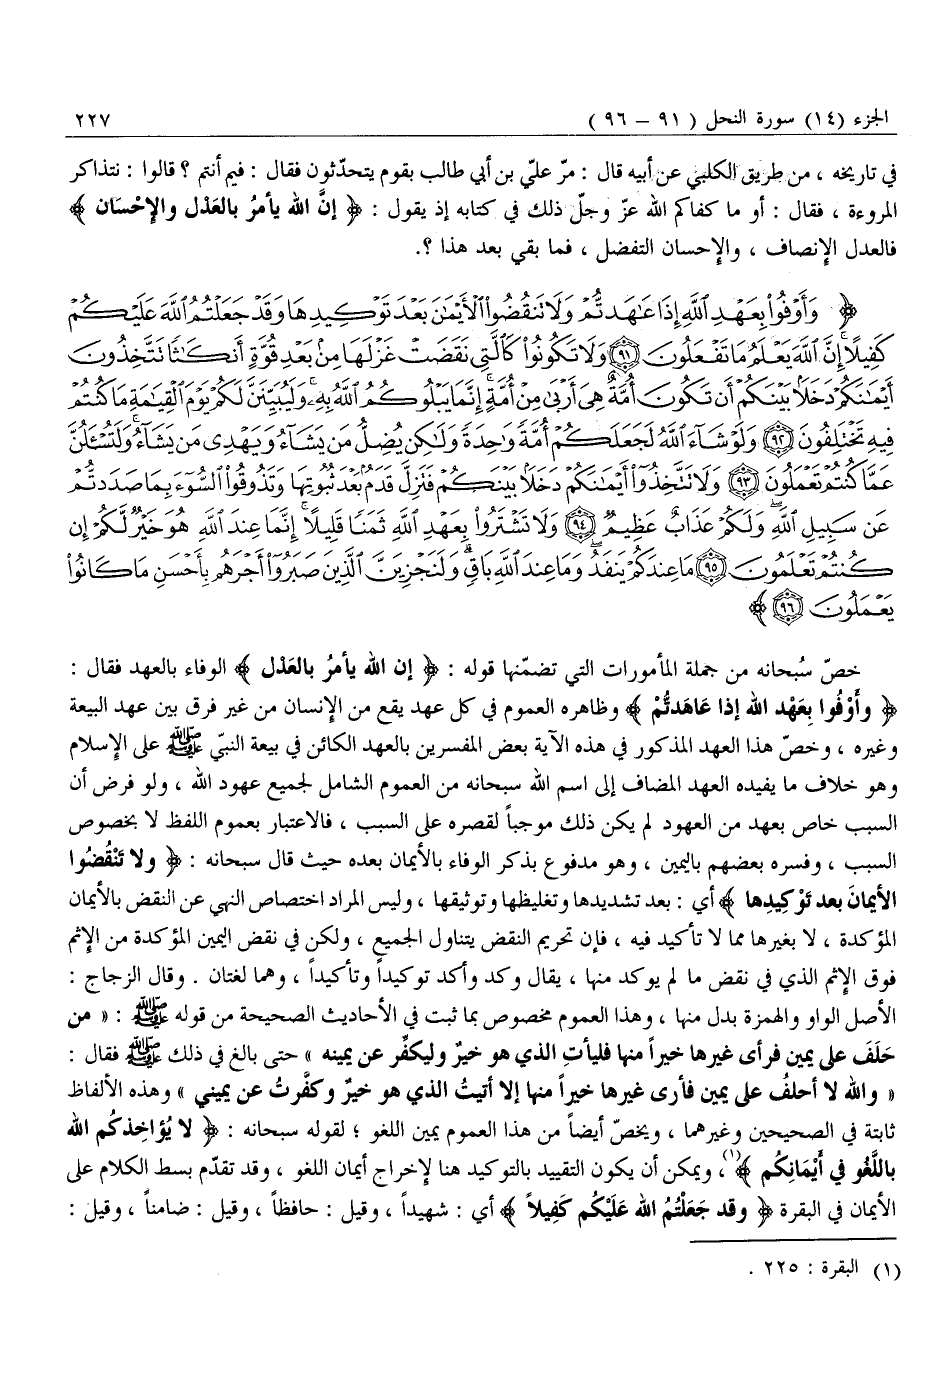 الجزء (١٤) سورة النحل ( ٩١ – ٩٦ ) ٢٢٧
في تاريخه ، من طريق الكلبي عن أبيه قال : مرّ عليّ بن أبي طالب بقوم يتحدّثون فقال : فيم أنتم ؟ قالوا : نتذاكر
المروءة ، فقال : أو ما كفاكم الله عزّ وجلّ ذلك في كتابه إذ يقول : ﴿ إنَّ الله يأمرُ بالعَدْل والإحْسَان ﴾
فالعدل الإنصاف ، والإحسان التفضل ، فما بقي بعد هذا ؟.
﴿ وَأَوْفُوا۟ بِعَهْدِ ٱللَّهِ إِذَا عَٰهَدتُّمْ وَلَا تَنقُضُوا۟ ٱلْأَيْمَٰنَ بَعْدَ تَوْكِيدِهَا وَقَدْ جَعَلْتُمُ ٱللَّهَ عَلَيْكُمْ
كَفِيلًا ۚ إِنَّ ٱللَّهَ يَعْلَمُ مَا تَفْعَلُونَ ﴿٩١﴾ وَلَا تَكُونُوا۟ كَٱلَّتِى نَقَضَتْ غَزْلَهَا مِنۢ بَعْدِ قُوَّةٍ أَنكَٰثًا تَتَّخِذُونَ
أَيْمَٰنَكُمْ دَخَلًۢا بَيْنَكُمْ أَن تَكُونَ أُمَّةٌ هِىَ أَرْبَىٰ مِنْ أُمَّةٍ ۚ إِنَّمَا يَبْلُوكُمُ ٱللَّهُ بِهِۦ ۚ وَلَيُبَيِّنَنَّ لَكُمْ يَوْمَ ٱلْقِيَٰمَةِ مَا كُنتُمْ
فِيهِ تَخْتَلِفُونَ ﴿٩٢﴾ وَلَوْ شَآءَ ٱللَّهُ لَجَعَلَكُمْ أُمَّةً وَٰحِدَةً وَلَٰكِن يُضِلُّ مَن يَشَآءُ وَيَهْدِى مَن يَشَآءُ ۚ وَلَتُسْـَٔلُنَّ
عَمَّا كُنتُمْ تَعْمَلُونَ ﴿٩٣﴾ وَلَا تَتَّخِذُوٓا۟ أَيْمَٰنَكُمْ دَخَلًۢا بَيْنَكُمْ فَتَزِلَّ قَدَمٌۢ بَعْدَ ثُبُوتِهَا وَتَذُوقُوا۟ ٱلسُّوٓءَ بِمَا صَدَدتُّمْ
عَن سَبِيلِ ٱللَّهِ ۖ وَلَكُمْ عَذَابٌ عَظِيمٌ ﴿٩٤﴾ وَلَا تَشْتَرُوا۟ بِعَهْدِ ٱللَّهِ ثَمَنًا قَلِيلًا ۚ إِنَّمَا عِندَ ٱللَّهِ هُوَ خَيْرٌ لَّكُمْ إِن
كُنتُمْ تَعْلَمُونَ ﴿٩٥﴾ مَا عِندَكُمْ يَنفَدُ ۖ وَمَا عِندَ ٱللَّهِ بَاقٍ ۗ وَلَنَجْزِيَنَّ ٱلَّذِينَ صَبَرُوٓا۟ أَجْرَهُم بِأَحْسَنِ مَا كَانُوا۟
يَعْمَلُونَ ﴿٩٦﴾ ﴾
خصّ سُبحانه من جملة المأمورات التي تضمّنها قوله : ﴿ إن الله يأمرُ بالعَدْل ﴾ الوفاء بالعهد فقال :
﴿ وأَوْفُوا بِعَهْد الله إذا عَاهَدتُّمْ ﴾ وظاهره العموم في كل عهد يقع من الإنسان من غير فرق بين عهد البيعة
وغيره ، وخصّ هذا العهد المذكور في هذه الآية بعض المفسرين بالعهد الكائن في بيعة النبيّ ﷺ على الإسلام
وهو خلاف ما يفيده العهد المضاف إلى اسم الله سبحانه من العموم الشامل لجميع عهود الله ، ولو فرض أن
السبب خاص بعهد من العهود لم يكن ذلك موجباً لقصره على السبب ، فالاعتبار بعموم اللفظ لا بخصوص
السبب ، وفسره بعضهم باليمين ، وهو مدفوع بذكر الوفاء بالأيمان بعده حيث قال سبحانه : ﴿ ولا تَنْقُضُوا
الأيمانَ بعد تَوْكِيدِها ﴾ أي : بعد تشديدها وتغليظها وتوثيقها ، وليس المراد اختصاص النهي عن النقض بالأيمان
المؤكدة ، لا بغيرها مما لا تأكيد فيه ، فإن تحريم النقض يتناول الجميع ، ولكن في نقض اليمين المؤكدة من الإثم
فوق الإثم الذي في نقض ما لم يوكد منها ، يقال وكد وأكد توكيداً وتأكيداً ، وهما لغتان . وقال الزجاج :
الأصل الواو والهمزة بدل منها ، وهذا العموم مخصوص بما ثبت في الأحاديث الصحيحة من قوله ﷺ : « من
حَلَفَ على يمين فرأى غيرها خيراً منها فليأتِ الذي هو خيرٌ وليكفِّر عن يمينه » حتى بالغ في ذلك ﷺ فقال :
« والله لا أحلفُ على يمين فأرى غيرها خيراً منها إلا أتيتُ الذي هو خيرٌ وكفَّرتُ عن يميني » وهذه الألفاظ
ثابتة في الصحيحين وغيرهما ، ويخصّ أيضاً من هذا العموم يمين اللغو ؛ لقوله سبحانه : ﴿ لا يُؤَاخِذكُم الله
باللَّغُو في أَيْمَانِكُم ﴾(١)، ويمكن أن يكون التقييد بالتوكيد هنا لإخراج أيمان اللغو ، وقد تقدّم بسط الكلام على
الأيمان في البقرة ﴿ وقد جَعَلْتُمُ الله عَلَيْكُم كَفِيلاً ﴾ أي : شهيداً ، وقيل : حافظاً ، وقيل : ضامناً ، وقيل :
(١) البقرة : ٢٢٥ .